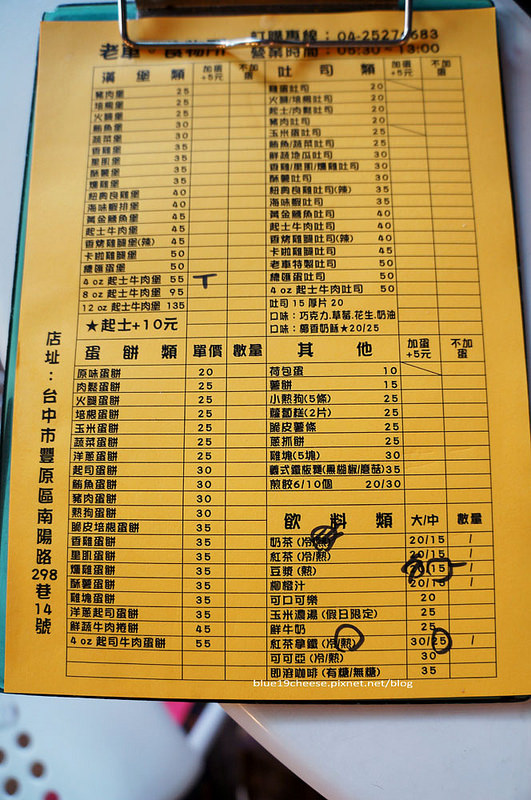 訂購專線：04-2527 683
營業時間：05:30～13:00
漢堡類 加蛋+5元 不加蛋
豬肉堡 25
培根堡 25
火腿堡 25
鮪魚堡 30
蔬菜堡 30
香雞堡 35
里肌堡 35
酥薯堡 35
燻雞堡 35
紐奧良雞堡 40
海味蝦排堡 40
黃金鱈魚堡 45
起士牛肉堡 45
香烤雞腿堡(辣) 45
卡啦雞堡 50
總匯蛋堡 50
4 oz 起士牛肉堡 55
8 oz 起士牛肉堡 95
12 oz 起士牛肉堡 135
★起士+10元
吐司類 加蛋+5元 不加蛋
雞蛋吐司 20
火腿/培根吐司 20
起士/肉鬆吐司 20
豬肉吐司 20
玉米蛋吐司 25
鮪魚/蔬菜吐司 25
鮮蔬地瓜吐司 30
香雞/里肌/燻雞吐司 30
酥薯吐司 30
紐奧良雞吐司(辣) 35
海味蝦吐司 35
黃金鱈魚吐司 40
起士牛肉吐司 40
香烤雞腿吐司(辣) 40
卡啦雞吐司 45
老車特製吐司 50
總匯蛋吐司 50
4 oz 起士牛肉吐司 50
吐司 15 厚片 20
口味：巧克力.草莓.花生.奶油
口味：椰香奶酥★20/25
蛋餅類 單價 數量
原味蛋餅 20
肉鬆蛋餅 25
火腿蛋餅 25
培根蛋餅 25
玉米蛋餅 25
蔬菜蛋餅 25
洋蔥蛋餅 25
起司蛋餅 30
鮪魚蛋餅 30
豬肉蛋餅 30
熱狗蛋餅 30
脆皮培根蛋餅 35
香雞蛋餅 35
里肌蛋餅 35
燻雞蛋餅 35
酥薯蛋餅 35
雞塊蛋餅 35
洋蔥起司蛋餅 35
鮮蔬牛肉捲餅 45
4 oz 起司牛肉蛋餅 55
其他 加蛋+5元 不加蛋
荷包蛋 10
薯餅 15
小熱狗(5條) 25
蘿蔔糕(2片) 25
脆皮薯條 25
蔥抓餅 25
雞塊(5塊) 30
義式鐵板麵(黑胡椒/蘑菇) 35
煎餃6/10個 20/30
飲料類 大/中 數量
奶茶 (冷/熱) 20/15
紅茶 (冷/熱) 20/15
豆漿 (熱) 15
柳橙汁 20/15
可口可樂 20
玉米濃湯 (假日限定) 25
鮮牛奶 25
紅茶拿鐵 (冷/熱) 30/25
可可亞 (冷/熱) 30
即溶咖啡 (有糖/無糖) 35
店址：台中市豐原區南陽路298巷14號
blue19cheese.pixnet.net/blog